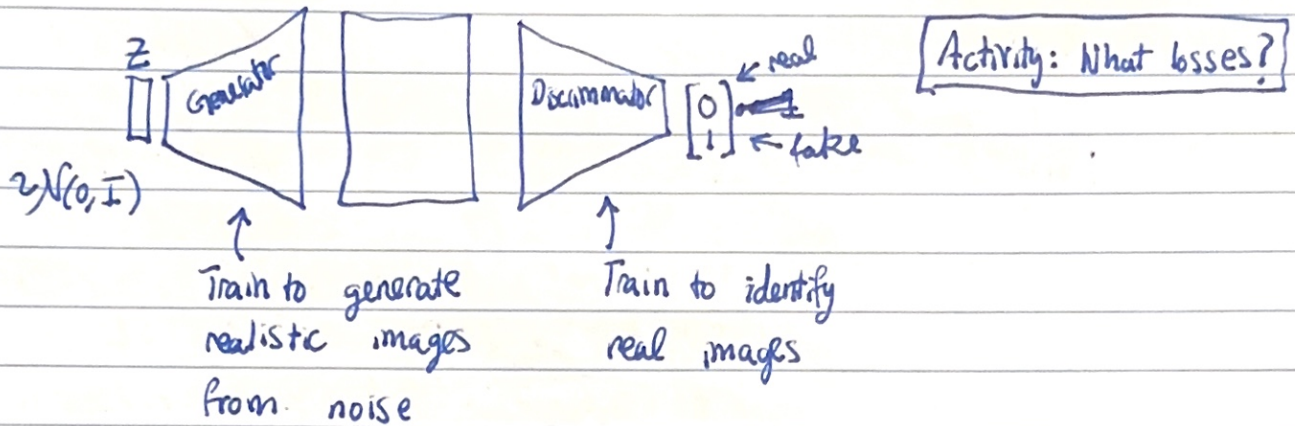 Z
Generator
Discriminator
[0
1]
← real
← fake
Activity: What losses?
~N(0, I)
Train to generate
realistic images
from noise
Train to identify
real images